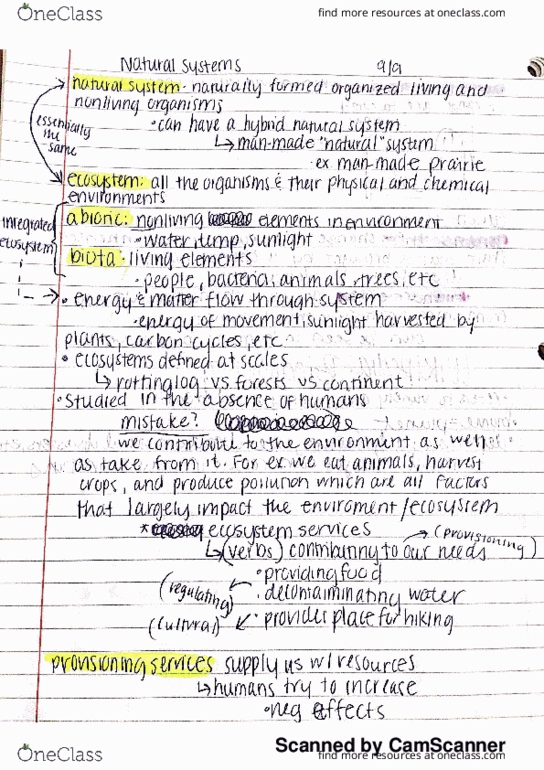 OneClass
find more resources at oneclass.com
Natural Systems 9/9
natural system - naturally formed organized living and
nonliving organisms
• can have a hybrid natural system
↳ man-made "natural" system
• ex man-made prairie
essentially
the
same
ecosystem: all the organisms & their physical and chemical
environments
abioric: nonliving elements in environment
• water, temp, sunlight
integrated
ecosystem
biota: living elements
• people, bacteria, animals, trees, etc
• energy & matter flow through system
• energy of movement, sunlight harvested by
plants, carbon cycles, etc
• ecosystems defined at scales
↳ rotting log vs forests vs continent
• Studied in the absence of humans
mistake?
we contribute to the environment as well
as take from it. For ex we eat animals, harvest
crops, and produce pollution which are all factors
that largely impact the enviroment/ecosystem
* ecosystem services
↳ (verbs) contributing to our needs → (provisioning)
• providing food
(regulating) ← • decontaminating water
(cultural) ↙ • provides place for hiking
provisioning services supply us w/ resources
↳ humans try to increase
• neg effects
Scanned by CamScanner
OneClass
find more resources at oneclass.com